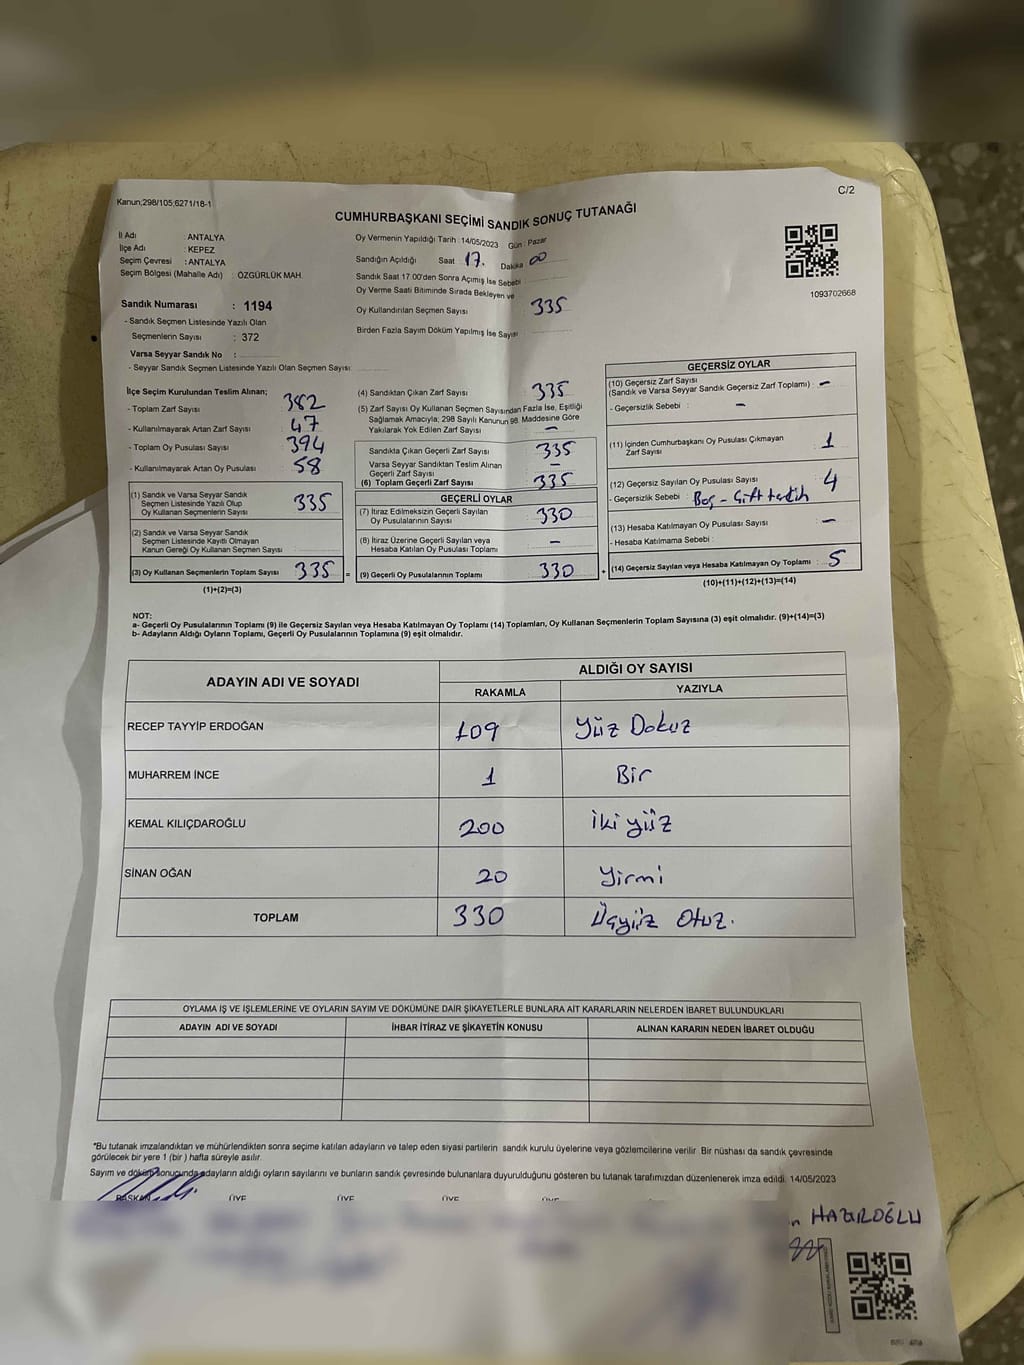 Kanun;298/105;6271/18-1
C/2
CUMHURBAŞKANI SEÇİMİ SANDIK SONUÇ TUTANAĞI
İl Adı : ANTALYA
İlçe Adı : KEPEZ
Seçim Çevresi : ANTALYA
Seçim Bölgesi (Mahalle Adı) : ÖZGÜRLÜK MAH.
Sandık Numarası : 1194
- Sandık Seçmen Listesinde Yazılı Olan
Seçmenlerin Sayısı : 372
Varsa Seyyar Sandık No :
- Seyyar Sandık Seçmen Listesinde Yazılı Olan Seçmen Sayısı:
Oy Vermenin Yapıldığı Tarih : 14/05/2023 Gün : Pazar
Sandığın Açıldığı Saat 17. Dakika 00
Sandık Saat 17:00'den Sonra Açımış İse Sebebi
Oy Verme Saati Bitiminde Sırada Bekleyen ve
Oy Kullandırılan Seçmen Sayısı 335
Birden Fazla Sayım Döküm Yapılmış İse Sayısı
1093702668
İlçe Seçim Kurulundan Teslim Alınan;
- Toplam Zarf Sayısı 382
- Kullanılmayarak Artan Zarf Sayısı 47
- Toplam Oy Pusulası Sayısı 394
- Kullanılmayarak Artan Oy Pusulası 58
(1) Sandık ve Varsa Seyyar Sandık
Seçmen Listesinde Yazılı Olup
Oy Kullanan Seçmenlerin Sayısı 335
(2) Sandık ve Varsa Seyyar Sandık
Seçmen Listesinde Kayıtlı Olmayan
Kanun Gereği Oy Kullanan Seçmen Sayısı
(3) Oy Kullanan Seçmenlerin Toplam Sayısı 335 =
(1)+(2)=(3)
(4) Sandıktan Çıkan Zarf Sayısı 335
(5) Zarf Sayısı Oy Kullanan Seçmen Sayısından Fazla İse, Eşitliği
Sağlamak Amacıyla; 298 Sayılı Kanunun 98. Maddesine Göre
Yakılarak Yok Edilen Zarf Sayısı –
Sandıkta Çıkan Geçerli Zarf Sayısı 335
Varsa Seyyar Sandıktan Teslim Alınan
Geçerli Zarf Sayısı –
(6) Toplam Geçerli Zarf Sayısı 335
GEÇERLİ OYLAR
(7) İtiraz Edilmeksizin Geçerli Sayılan
Oy Pusulalarının Sayısı 330
(8) İtiraz Üzerine Geçerli Sayılan veya
Hesaba Katılan Oy Pusulası Toplamı –
(9) Geçerli Oy Pusulalarının Toplamı 330 +
GEÇERSİZ OYLAR
(10) Geçersiz Zarf Sayısı
(Sandık ve Varsa Seyyar Sandık Geçersiz Zarf Toplamı) : –
- Geçersizlik Sebebi : –
(11) İçinden Cumhurbaşkanı Oy Pusulası Çıkmayan
Zarf Sayısı 1
(12) Geçersiz Sayılan Oy Pusulası Sayısı 4
- Geçersizlik Sebebi : Boş - Çift tercih
(13) Hesaba Katılmayan Oy Pusulası Sayısı –
- Hesaba Katılmama Sebebi :
(14) Geçersiz Sayılan veya Hesaba Katılmayan Oy Toplamı : 5
(10)+(11)+(12)+(13)=(14)
NOT:
a- Geçerli Oy Pusulalarının Toplamı (9) ile Geçersiz Sayılan veya Hesaba Katılmayan Oy Toplamı (14) Toplamları, Oy Kullanan Seçmenlerin Toplam Sayısına (3) eşit olmalıdır. (9)+(14)=(3)
b- Adayların Aldığı Oyların Toplamı, Geçerli Oy Pusulalarının Toplamına (9) eşit olmalıdır.
ADAYIN ADI VE SOYADI ALDIĞI OY SAYISI
RAKAMLA YAZIYLA
RECEP TAYYİP ERDOĞAN 109 Yüz Dokuz
MUHARREM İNCE 1 Bir
KEMAL KILIÇDAROĞLU 200 İki yüz
SİNAN OĞAN 20 Yirmi
TOPLAM 330 Üçyüz Otuz.
OYLAMA İŞ VE İŞLEMLERİNE VE OYLARIN SAYIM VE DÖKÜMÜNE DAİR ŞİKAYETLERLE BUNLARA AİT KARARLARIN NELERDEN İBARET BULUNDUKLARI
ADAYIN ADI VE SOYADI İHBAR İTİRAZ VE ŞİKAYETİN KONUSU ALINAN KARARIN NEDEN İBARET OLDUĞU
*Bu tutanak imzalandıktan ve mühürlendikten sonra seçime katılan adayların ve talep eden siyasi partilerin sandık kurulu üyelerine veya gözlemcilerine verilir. Bir nüshası da sandık çevresinde
görülecek bir yere 1 (bir ) hafta süreyle asılır.
Sayım ve döküm sonucunda adayların aldığı oyların sayılarını ve bunların sandık çevresinde bulunanlara duyurulduğunu gösteren bu tutanak tarafımızdan düzenlenerek imza edildi. 14/05/2023
BAŞKAN ÜYE ÜYE ÜYE ÜYE
HAZIROĞLU